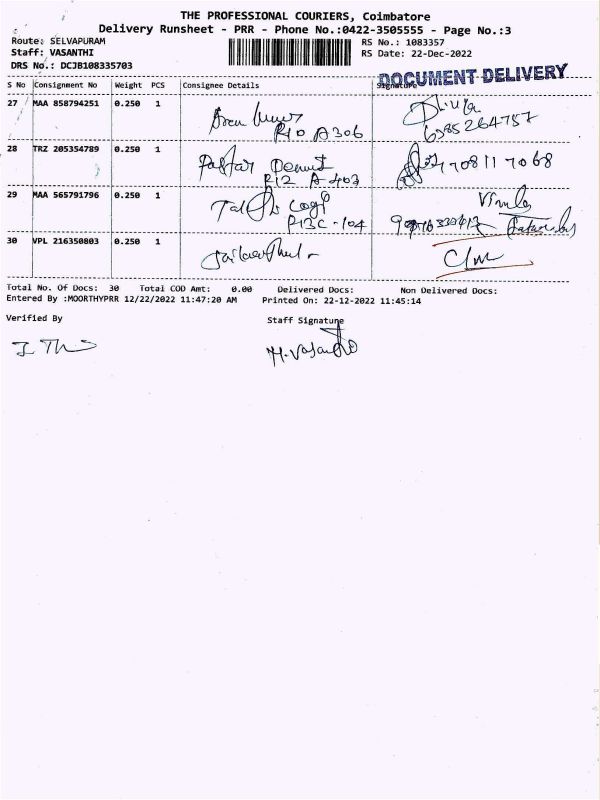 THE PROFESSIONAL COURIERS, Coimbatore
Delivery Runsheet - PRR - Phone No.:0422-3505555 - Page No.:3
Route: SELVAPURAM RS No.: 1083357
Staff: VASANTHI RS Date: 22-Dec-2022
DRS No.: DCJB108335703
DOCUMENT DELIVERY
S No Consignment No Weight PCS Consignee Details Signature
27 MAA 858794251 0.250 1
R10 A306 6385264757
28 TRZ 205354789 0.250 1
R12 A-403 7708117068
29 MAA 565791796 0.250 1
R13C-104
30 VPL 216350803 0.250 1
Total No. Of Docs: 30 Total COD Amt: 0.00 Delivered Docs: Non Delivered Docs:
Entered By :MOORTHYPRR 12/22/2022 11:47:20 AM Printed On: 22-12-2022 11:45:14
Verified By Staff Signature
M. Vasanthi